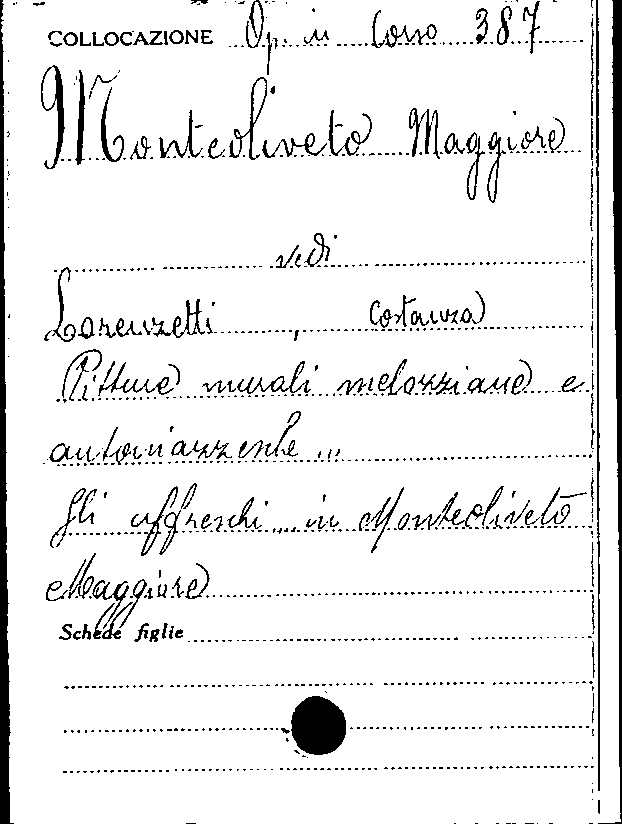 COLLOCAZIONE Op. in Corso 387
Monteoliveto Maggiore
vedi
Lorenzetti , Costanza
Pitture murali melozziane e
antoniazzesche ...
Gli affreschi ... in Monteoliveto
Maggiore
Schede figlie